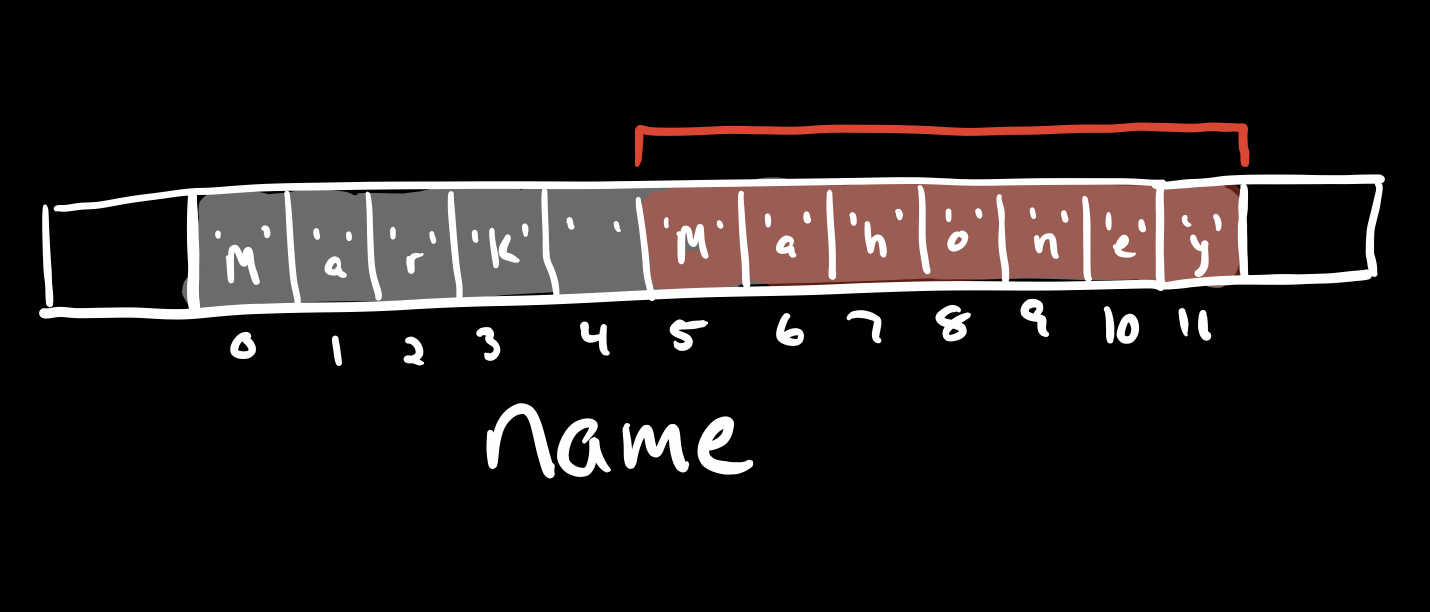 'M' 'a' 'r' 'K' ' ' 'M' 'a' 'h' 'o' 'n' 'e' 'y'
0 1 2 3 4 5 6 7 8 9 10 11
name